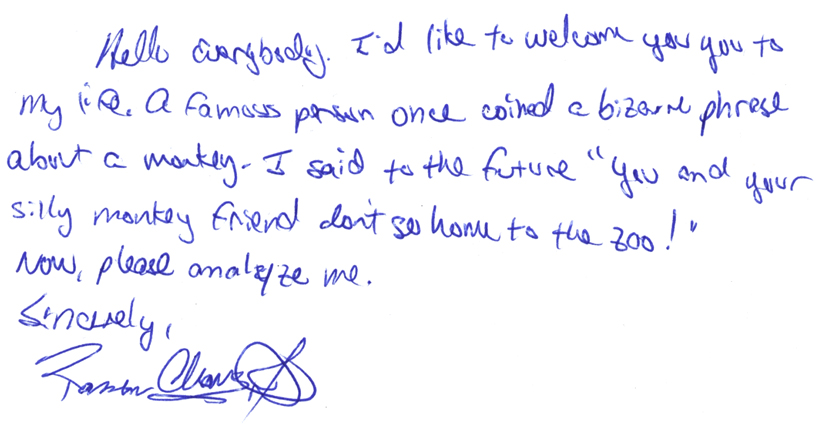 Hello Everybody. I'd like to welcome you you to
my life. A famous person once coined a bizarre phrase
about a monkey. I said to the future "You and your
silly monkey friend don't go home to the zoo!"
Now, please analyze me.
Sincerely,